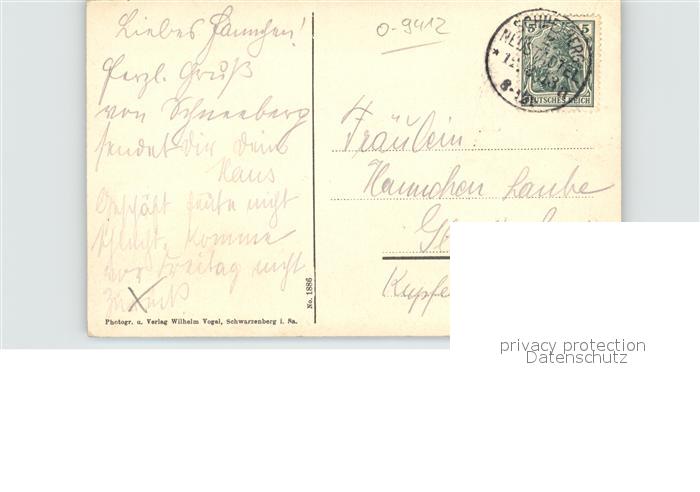 Liebes Hannchen!
Herzl. Gruß
von Schneeberg
sendet Dir Dein
Hans
Geschäft heute nicht
schlecht. Komme
vor Freitag nicht
zurück
Photogr. u. Verlag Wilhelm Vogel, Schwarzenberg i. Sa.
No. 1886
0-9412
SCHNEEBERG
5
DEUTSCHES REICH
Fräulein:
Hannchen Laube
Kupfe
privacy protection
Datenschutz